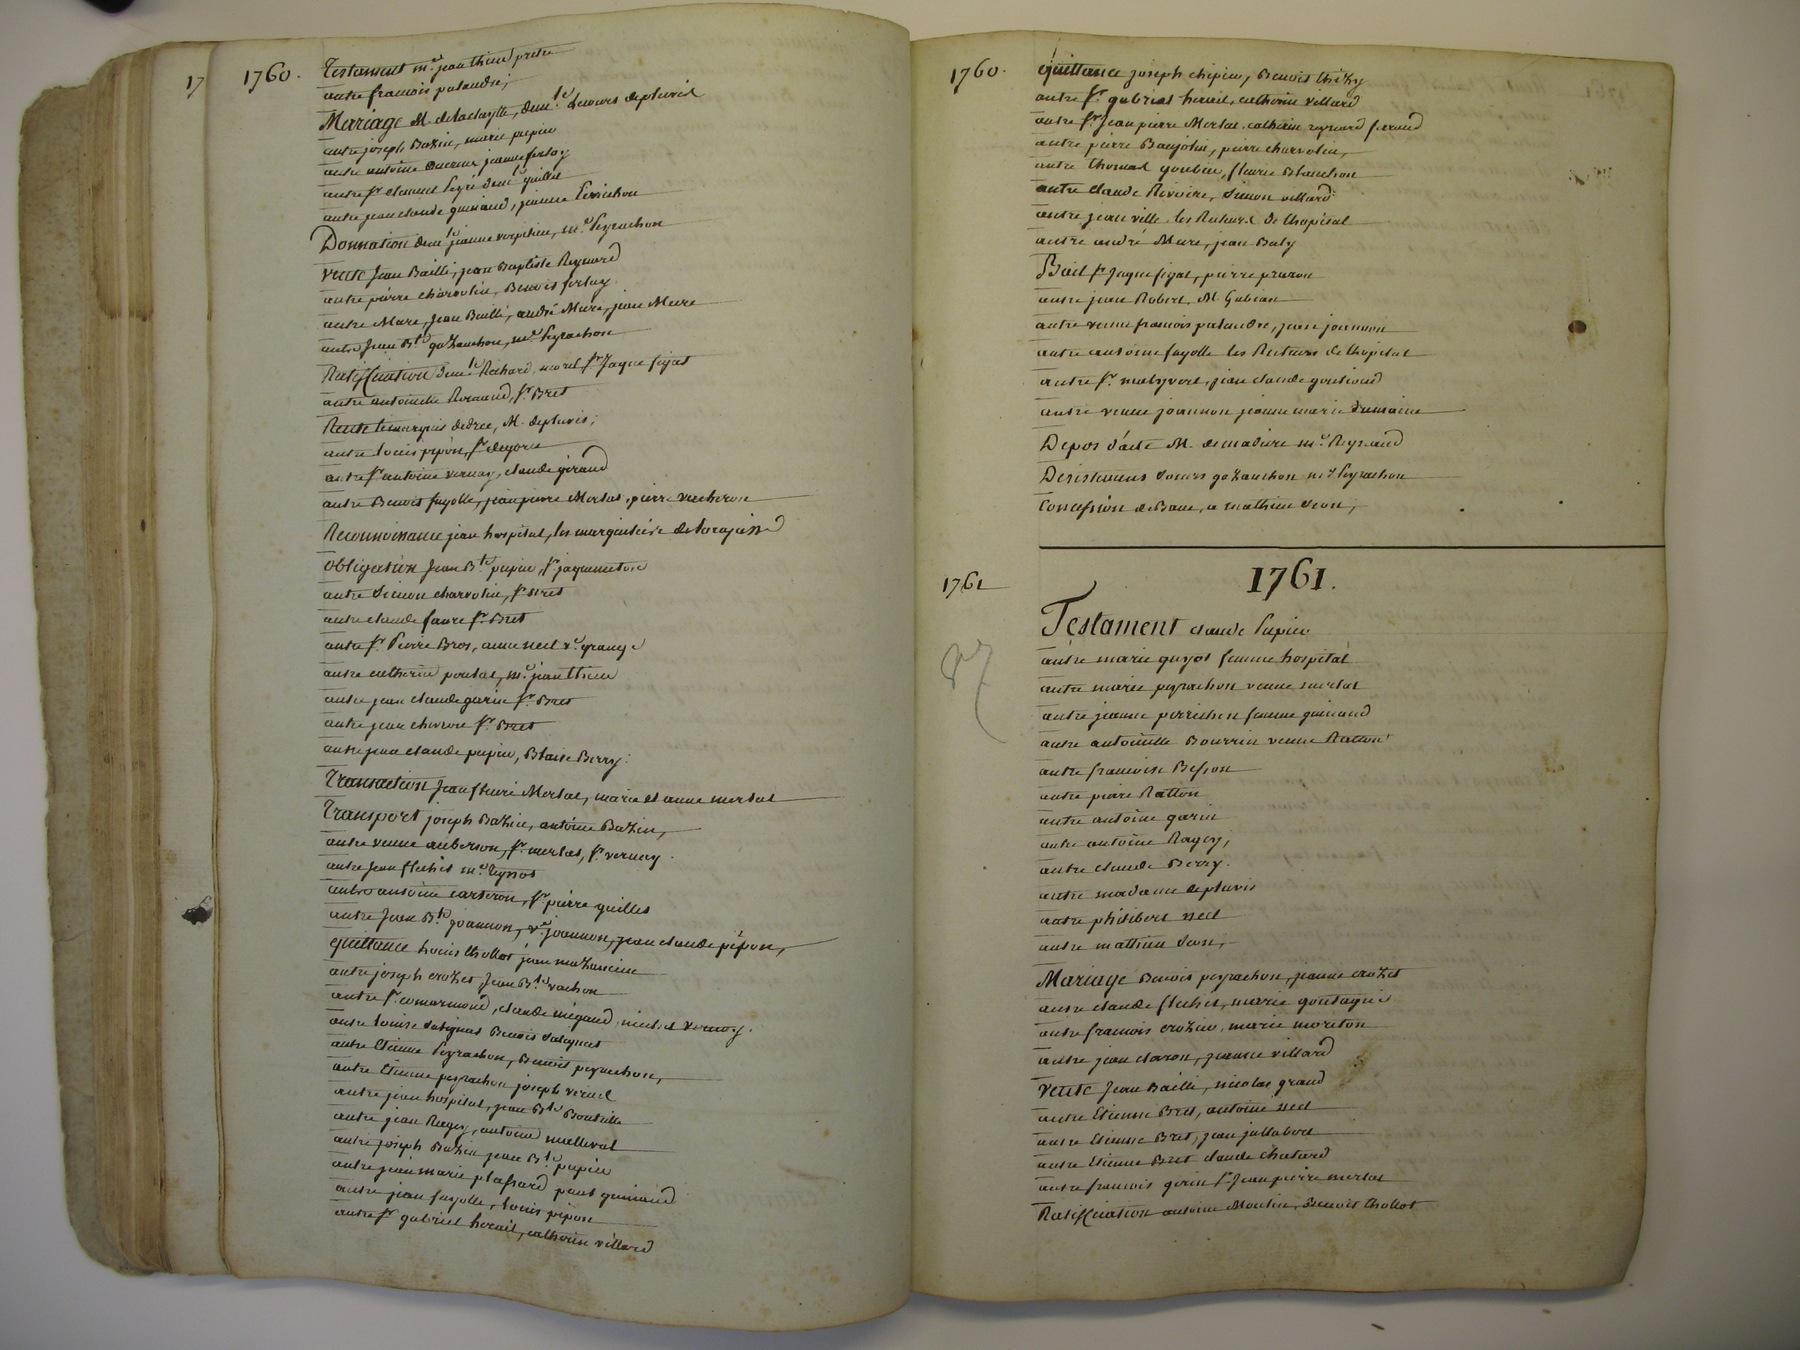 17
1760.
Testament me jean thieu prêtre
autre francois palandre;
Mariage M. delaclaytte, demlle depluvis
autre joseph Bazin, marie pupier
autre antoine jeanne ferlay
autre sr clement demlle guillet
autre jean claude guinand, jeanne Perrichon
Donnation demlle jeanne verpilieu, me Peyrachon
Vente Jean Bailli, jean Baptiste Reynard
autre pierre charvolin, Benois ferlay
autre Mure, Jean Bailli, andré Mure, jean Mure
autre Jean Bte gozanchon, me Peyrachon
Ratiffication demlle Richard, sr Jaque figat
autre antoinette Renaud, sr Bret
Rente le marquis dedree, M. depluvis;
autre louis pipon, sr
autre sr antoine vernay, claude giraud
autre Benois fayolle, jean pierre Merlat, pierre vacheron
Reconnoissance jean hospital, les marguilliers de larajasse
Obligation Jean Bte pupier, sr jaquemetton
autre Simon charvolin, sr Bret
autre claude favre sr Bret
autre sr Pierre Bros, anne neel ve grange
autre catherin poulat, me jean thieu
autre jean claude garin sr Bret
autre jean chevron sr Bret
autre jean claude pupier, Blaise Berry.
Transaction Jean fleuri Merlat, marie et anne merlat
Transport joseph Bazin, antoine Bazin,
autre veuve auberson, sr merlat, sr vernay.
autre Jean flechet me Peyssot
autre antoine carteron, sr pierre guillet
autre Jean Bte joannon, ve joannon, jean claude pipon,
quittance louis thollot jean mazancieu
autre joseph crozet, Jean Bte vachon
autre sr comarmond, claude megaud, vernay.
autre louise salignat Benois salignat
autre Etienne Peyrachon, Benois peyrachon,
autre Etienne peyrachon joseph
autre jean hospital, jean Bte Bouteille
autre jean Ragey, antoine malleval
autre joseph Bazin jean Bte pupier
autre jean marie plassard paul guinand
autre jean fayolle, louis pipon
autre sr gabriel herail, catherin villard
1760.
quittance joseph chipier, Benois thizy
autre sr gabriel herail, catherin villard
autre sr Jean pierre Merlat, catherin reynard ferraud
autre pierre Banjolin, pierre charvolin,
autre thomas goubier, fleurie Blanchon
autre claude Revoire, Simon villard
autre jean ville les Recteurs de lhopital
autre andré Mure, jean Baly
Bail sr Jaque figat, pierre praron
autre jean Robert, M. Gubian
autre veuve francois palandre, jean joannon
autre antoine fayolle les Recteurs de lhopital
autre sr malyvert, jean claude goutiond
autre veuve joannon jeanne marie dumaine
Depos d'acte M. demadiere me Reynaud
Desistement soeurs gozanchon me Peyrachon
Concession de Banc, a mathieu Seon,
1761
1761.
Testament claude Pupier
autre marie guyot femme hospital
autre marie peyrachon veuve merlat
autre jeanne perrichon femme guinand
autre antoinette Bourrin veuve Ratton
autre francoise Besson
autre pierre Ratton
autre antoine garin
autre antoine Ragey,
autre claude Berry.
autre madame depluvis
autre philibert neel
autre mathieu Seon,
Mariage Benois peyrachon, jeanne crozet
autre claude flechet, marie goutagni
autre francois crozier, marie moreton
autre jean claron, jeanne villard
Vente Jean Bailli, nicolas grand
autre Etienne Bret, antoine neel
autre Etienne Bret, jean jallabert
autre Etienne Bret claude chatard
autre francois gerin sr Jean pierre merlat
Ratiffication antoine Moulin, Benois thollot